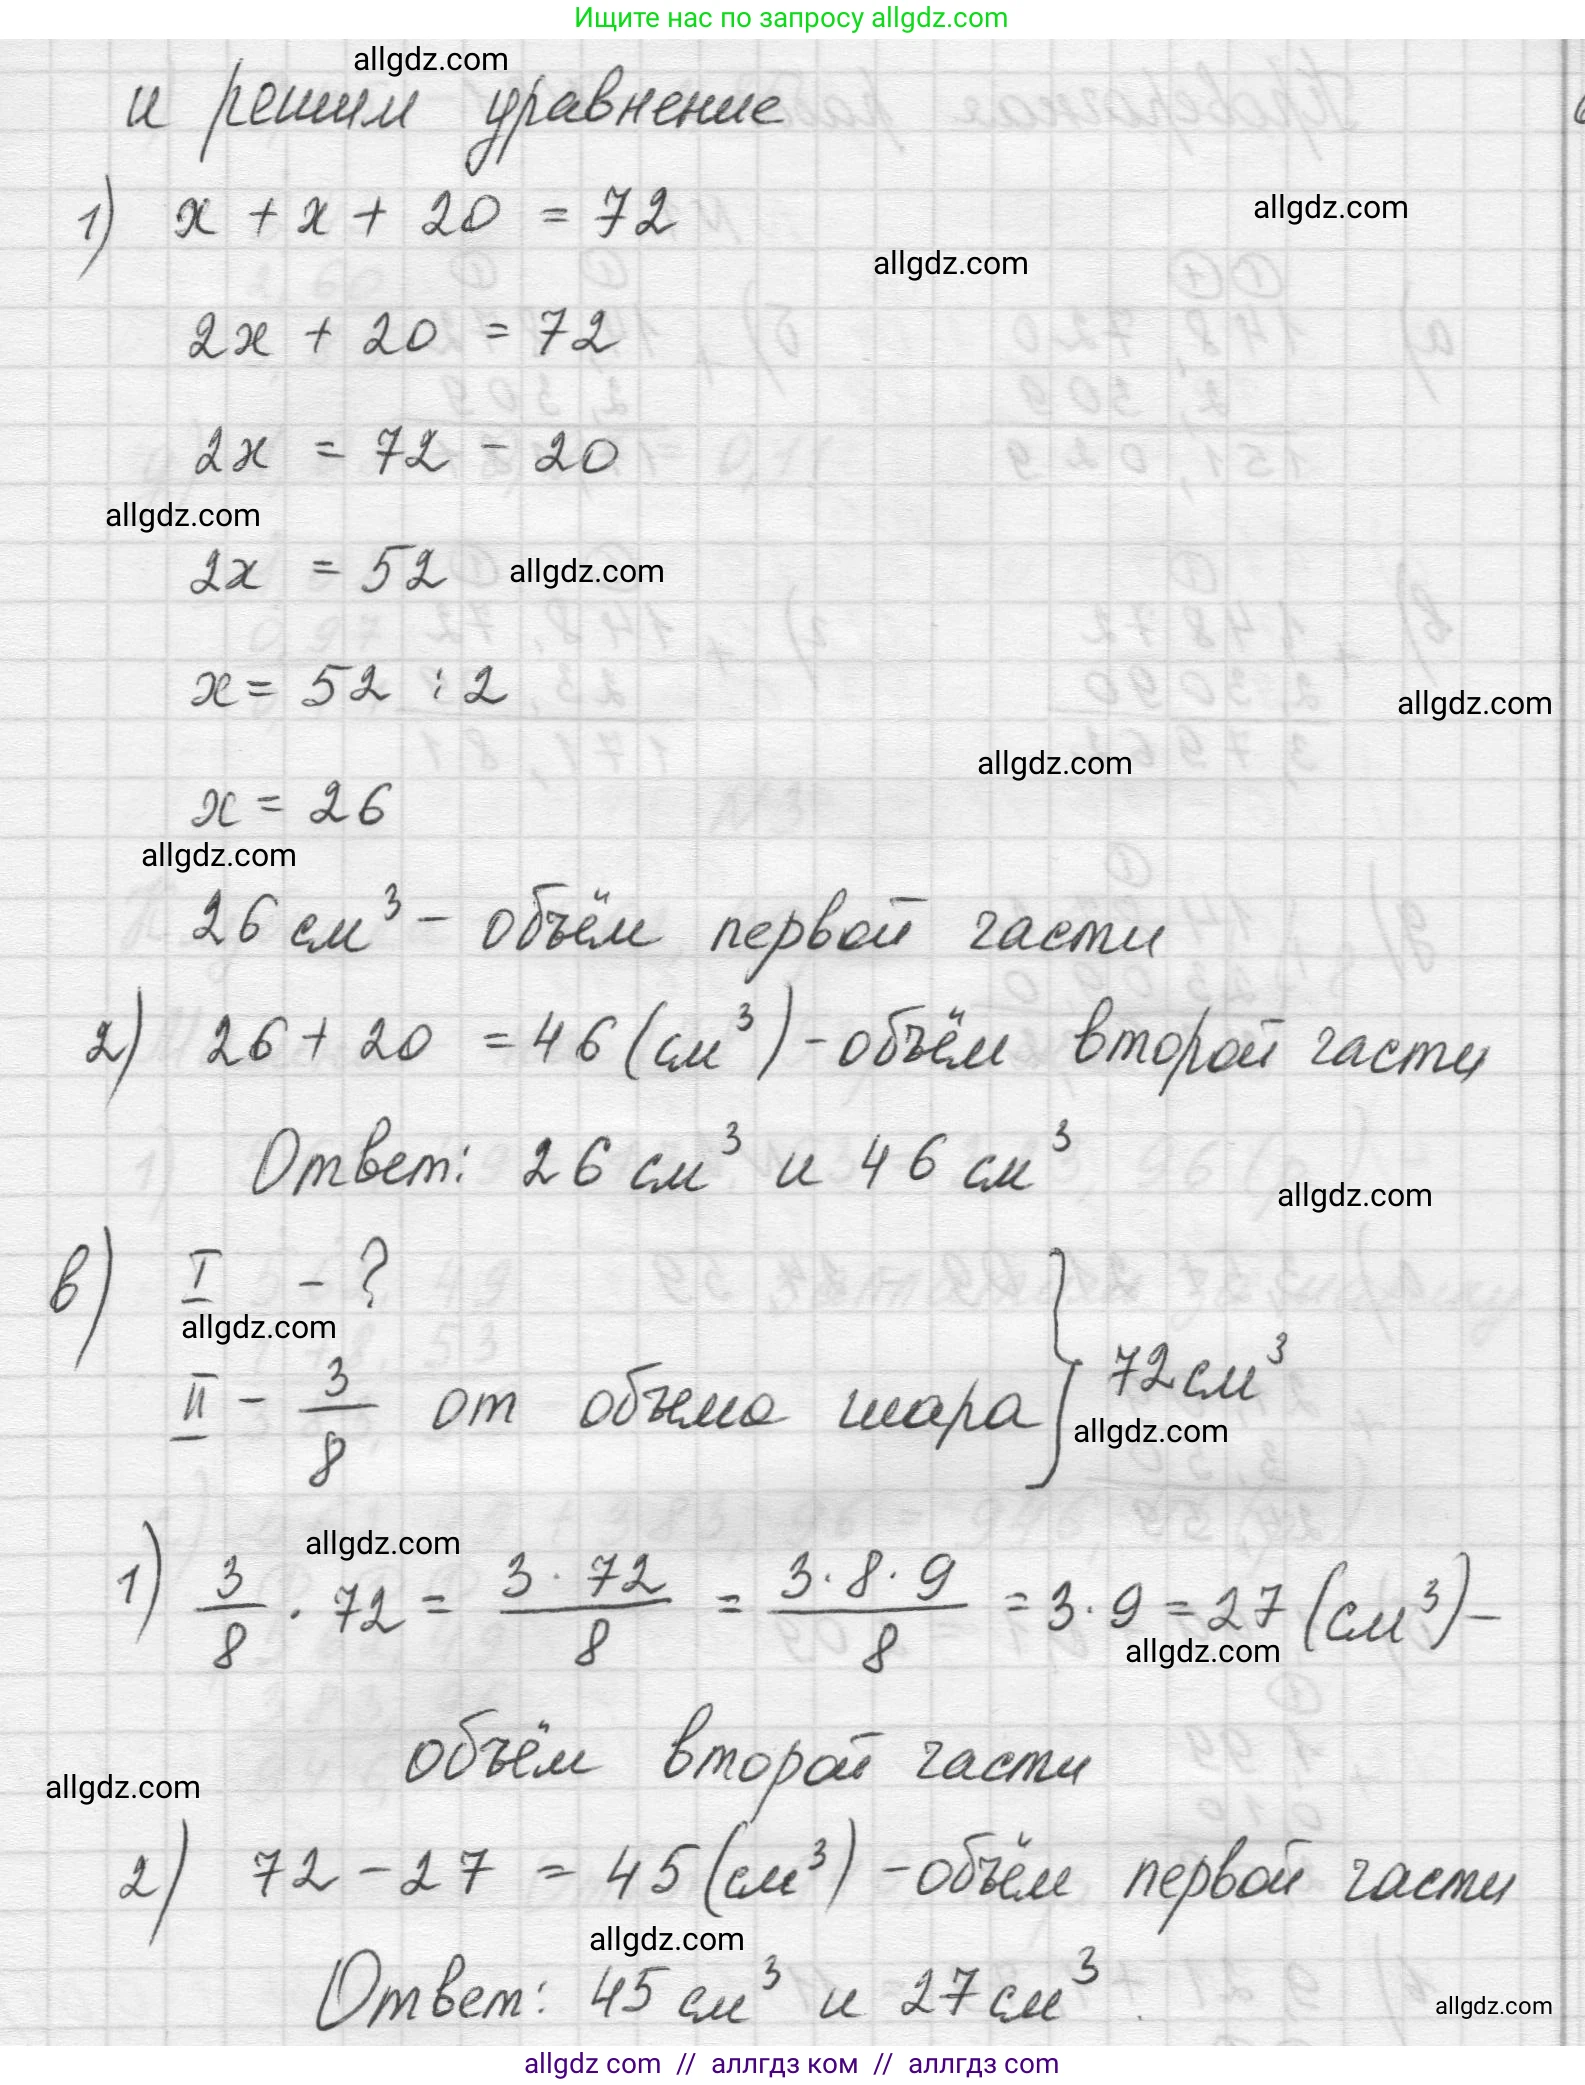 Ищите нас по запросу allgdz.com
allgdz.com
и решим уравнение
1) x + x + 20 = 72
allgdz.com
allgdz.com
2x + 20 = 72
2x = 72 - 20
allgdz.com
2x = 52
allgdz.com
x = 52 : 2
allgdz.com
allgdz.com
x = 26
allgdz.com
26 см³ - объём первой части
2) 26 + 20 = 46 (см³) - объём второй части
Ответ: 26 см³ и 46 см³
allgdz.com
в) I - ?
allgdz.com
II - 3/8 от объема шара } 72 см³
allgdz.com
allgdz.com
1) 3/8 · 72 = 3 · 72/8 = 3 · 8 · 9/8 = 3 · 9 = 27 (см³) -
allgdz.com
объём второй части
allgdz.com
2) 72 - 27 = 45 (см³) - объём первой части
allgdz.com
Ответ: 45 см³ и 27 см³.
allgdz.com
allgdz com // аллгдз ком // аллгдз com